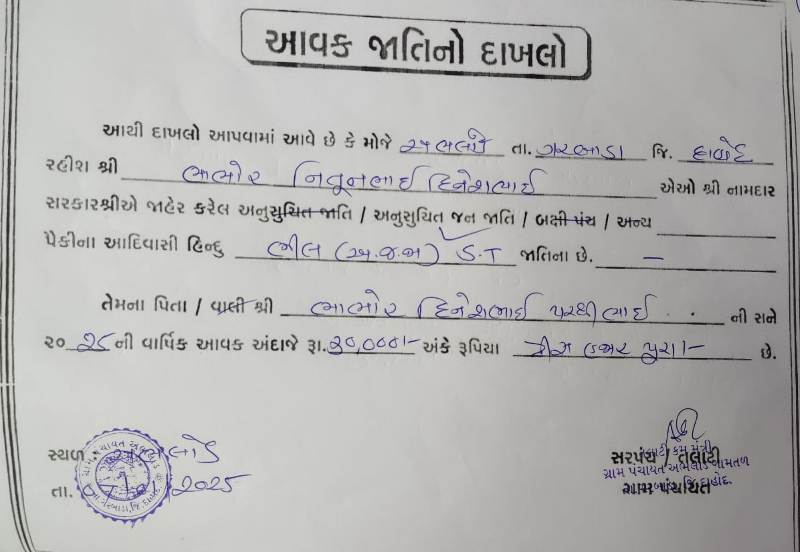 આવક જાતિનો દાખલો
આથી દાખલો આપવામાં આવે છે કે મોજે અભલોડ તા. ગરબાડા જિ. દાહોદ
રહીશ શ્રી ભાભોર નિતૂનભાઇ દિનેશભાઇ એઓ શ્રી નામદાર
સરકારશ્રીએ જાહેર કરેલ અનુસુચિત જાતિ / અનુસુચિત જન જાતિ / બક્ષી પંચ / અન્ય
પૈકીના આદિવાસી હિન્દુ ભીલ (અ.જ.જા) S.T જાતિના છે. –
તેમના પિતા / વાલી શ્રી ભાભોર દિનેશભાઇ પરથીભાઇ ની સને
૨૦ ૨૪ ની વાર્ષિક આવક અંદાજે રૂા. ૩૦,૦૦૦/- અંકે રૂપિયા ત્રીસ હજાર પુરા/- છે.
સ્થળ અભલોડ
તા. 2025
સરપંચ / તલાટી
તલાટી કમ મંત્રી
ગ્રામ પંચાયત અભલોડ
ગ્રામ પંચાયત
જિ.દાહોદ.